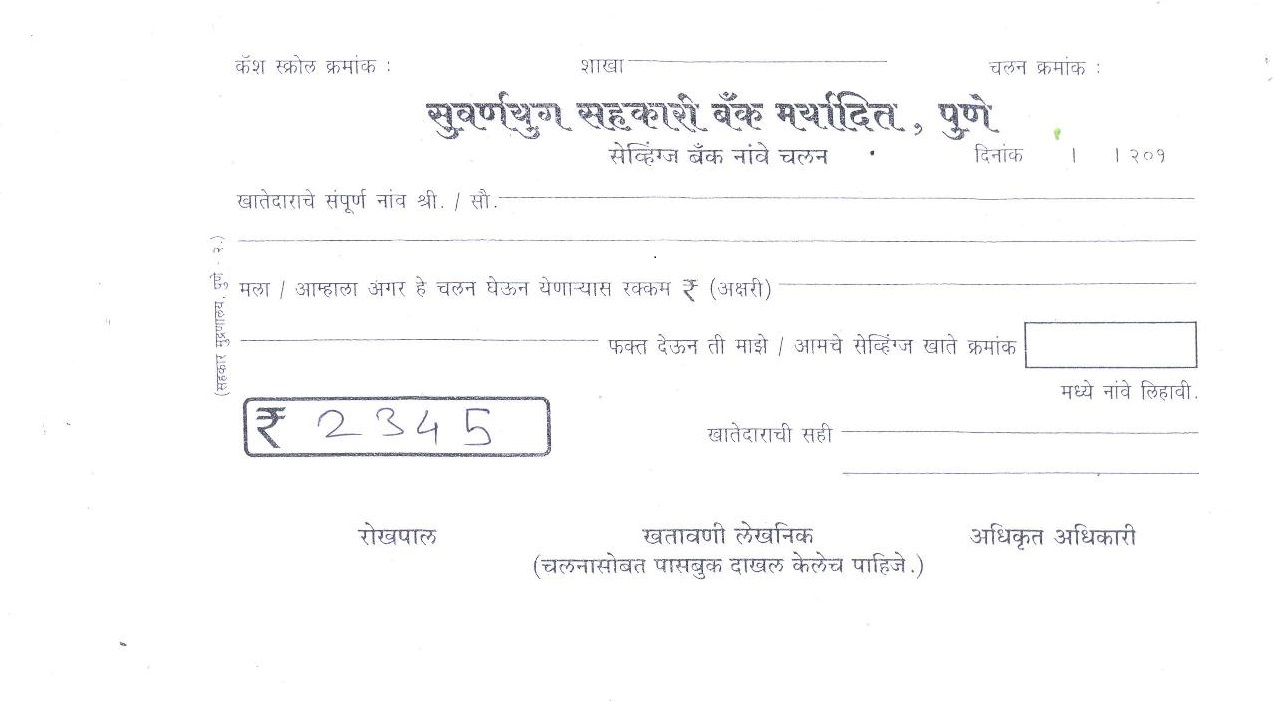 कॅश स्क्रोल क्रमांक : शाखा चलन क्रमांक :
सुवर्णयुग सहकारी बँक मर्यादित, पुणे
सेव्हिंग्ज बँक नांवे चलन दिनांक । । २०१
खातेदाराचे संपूर्ण नांव श्री. / सौ.
मला / आम्हाला अगर हे चलन घेऊन येणाऱ्यास रक्कम ₹ (अक्षरी)
फक्त देऊन ती माझे / आमचे सेव्हिंग्ज खाते क्रमांक
मध्ये नांवे लिहावी.
₹ 2345
खातेदाराची सही
रोखपाल खतावणी लेखनिक अधिकृत अधिकारी
(चलनासोबत पासबुक दाखल केलेच पाहिजे.)
(सहकार मुद्रणालय, पुणे - २.)